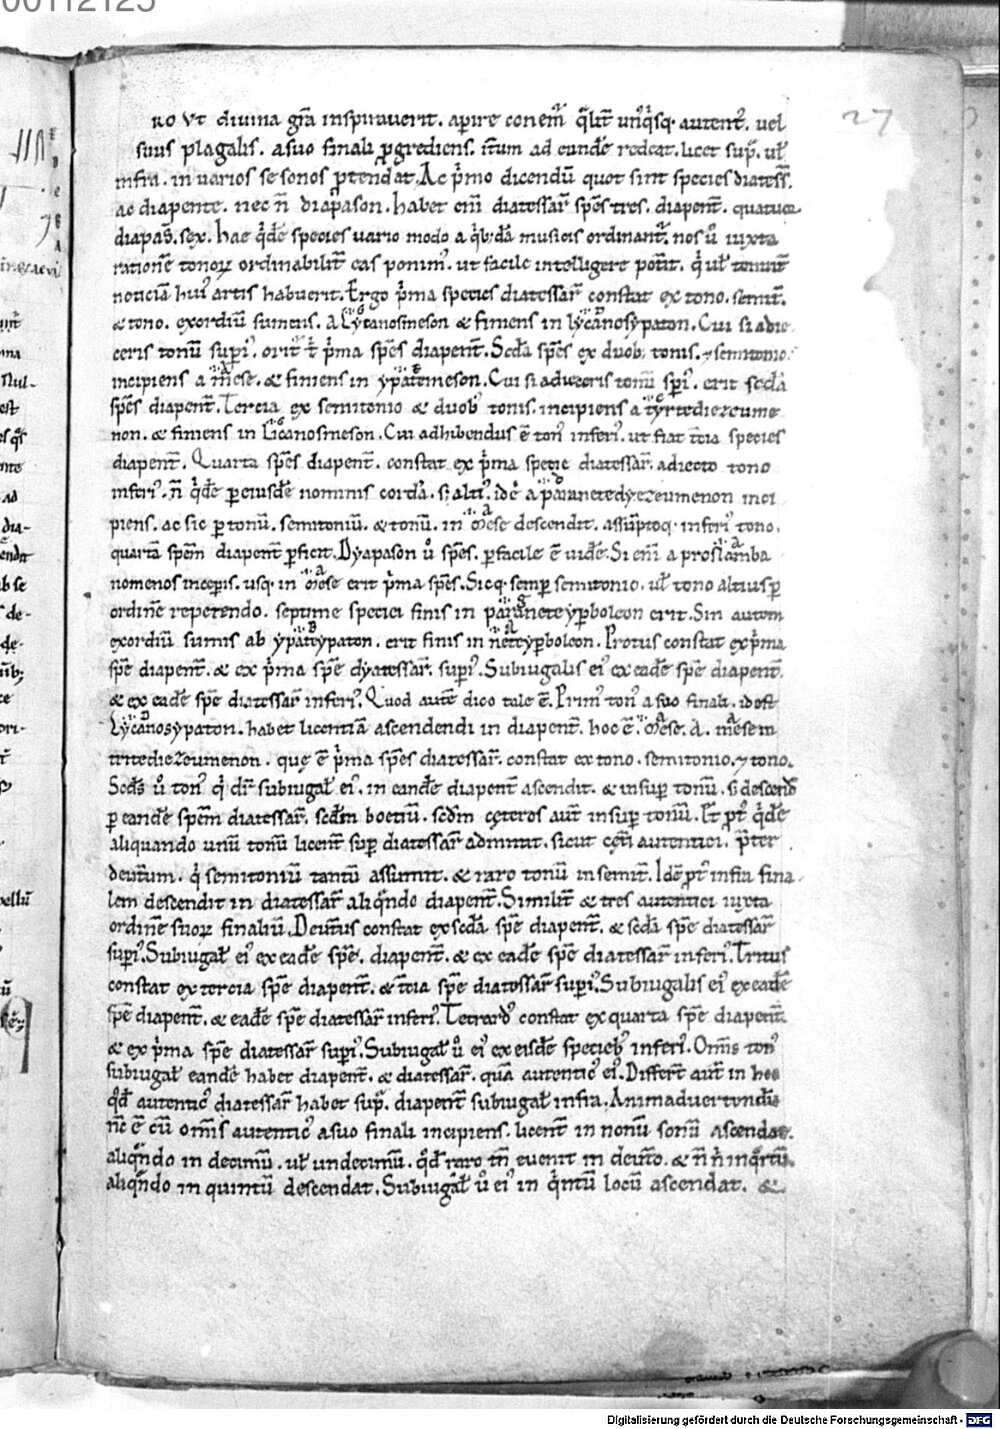 00112125
27
RO VT divina gr̄a inspiraverit. aperire conem̃ q̃lit̃ unq̇sq; autent̃. vel
suus plagalis. a suo finali p̱grediens. it̃um ad eundē redeat. licet sup̃. uł
infra. in varios se sonos p̱tendat. Ac p̃mo dicendū quot sint species diatess̃.
ac diapente. nec ñ diapason. habet eni᷒ diatessar̃ sp̃es tres. diapent̃. quatuor
diapas̃. sex. hae q̇dē species vario modo a q̇b;dā musicis ordinant̃. nos ů iuxta
rationē tonoꝝ ordinabilit̃ eas ponim᷒. ut facile intelligere potĩt. q̇ uł tenuit̃
noticiā hui᷒ artis habuerit. Ergo p̃ma species diatessar̃ constat ex tono. semit̃.
& tono. exordiū sumens. a Lycanosmeson & finiens in lycanosypaton. Cui si adie
ceris tonū superi᷒. orit᷒ t̄ p̃ma sp̃es diapent̃. Scdā sp̃es ex duob; tonis. ⁊ semitonio.
incipiens a mese. & finiens in ypatemeson. Cui si adieceris tonū superi᷒. erit scdā
sp̃es diapent̃. Tercia ex semitonio & duob; tonis. incipiens a tyrtediezeume
non. & finiens in Licanosmeson. Cui adhibendus ē ton᷒ inferi᷒. ut fiat t̃cia species
diapent̃. Quarta sp̃es diapent̃. constat ex p̃ma specie diatessar̃. adiecto tono
inferi᷒. ñ q̇dē p̱ eiusdē nominis cordā. s; alti᷒. id ē a paranetedyezeumenon inci
piens. ac sic p̱ tonū. semitoniū. & tonū. in mese descendit. assūptoq; inferi᷒ tono.
quartā sp̃em diapent̃ p̱ficit. Dyapason ů sp̃es. p̱facile ē vidē. Si eni᷒ a proslamba
nomenos inceperis. usq; in mese erit p̃ma sp̃es. Sicq; semp̱ semitonio. uł tono altius p̱
ordinē repetendo. septime speciei finis in paraneteyperboleon erit. Sin autem
exordiū sumis ab ypateypaton. erit finis in neteyperboleon. Protus constat ex p̃ma
sp̃e diapent̃. & ex p̃ma sp̃e dyatessar̃. superi᷒. Subiugalis ei᷒ ex eadē sp̃e diapent̃.
& ex eadē sp̃e diatessar̃ inferi᷒. Quod autē dico tale ē. Prim᷒ ton᷒ a suo finali. id est
Lycanosypaton. habet licentiā ascendendi in diapent̃. hoc ē. mese. A. mese in
tritediezeumenon. quę ē p̃ma sp̃es diatessar̃. constat ex tono. semitonio. ⁊ tono.
Scds̄ ů ton᷒ q̇ dr̃ subiugał ei᷒. in eandē diapent̃ ascendit. & insup̱ tonū. s; descendit
p̱ eandē sp̃em diatessar̃. scd̄m boetiū. scd̄m cęteros aut̃ insup̱ tonū. Et p̱t᷒ q̇dē
aliquando unū tonū licent̃ sup̱ diatessar̃ admittit. sicut cęt̃i autentici. p̃ter
deut̃um. q̇ semitoniū tantū assumit. & raro tonū in semit̃. Idē p̱t᷒ infra fina
lem descendit in diatessar̃ aliq̃ndo diapent̃. Similit̃ & tres autentici iuxta
ordinē suoꝝ finaliū. Deut̃us constat ex scdā sp̃e diapent̃. & scdā sp̃e diatessar̃
superi᷒. Subiugał ei᷒ ex eadē sp̃e. diapent̃. & ex eadē sp̃e diatessar̃ inferi᷒. Tritus
constat ex tercia sp̃e diapent̃. & t̃cia sp̃e diatessar̃ superi᷒. Subiugalis ei᷒ ex eadē
sp̃e diapent̃. & eadē sp̃e diatessar̃ inferi᷒. Tetrard᷒ constat ex quarta sp̃e diapent̃
& ex p̃ma sp̃e diatessar̃ superi᷒. Subiugał ů ei᷒ ex eisdē specieb; inferi᷒. Omīs ton᷒
subiugał eandē habet diapent̃. & diatessar̃. quā autentic᷒ ei᷒. Differt̃ aut̃ in hoc
q̇d autentic᷒ diatessar̃ habet sup̃. diapent̃ subiugał infra. Animadvertendū
nc̄ ē cū omīs autentic᷒ a suo finali incipiens. licent̃ in nonū sonū ascendat.
aliq̃ndo in decimū. uł undecimū. q̇d raro tn̄ evenit in deut̃o. & ñ n̊ in q̃rtū.
aliq̃ndo in quintū descendat. Subiugał ů ei᷒ in q̇ntū locū ascendat. &
Digitalisierung gefördert durch die Deutsche Forschungsgemeinschaft - DFG